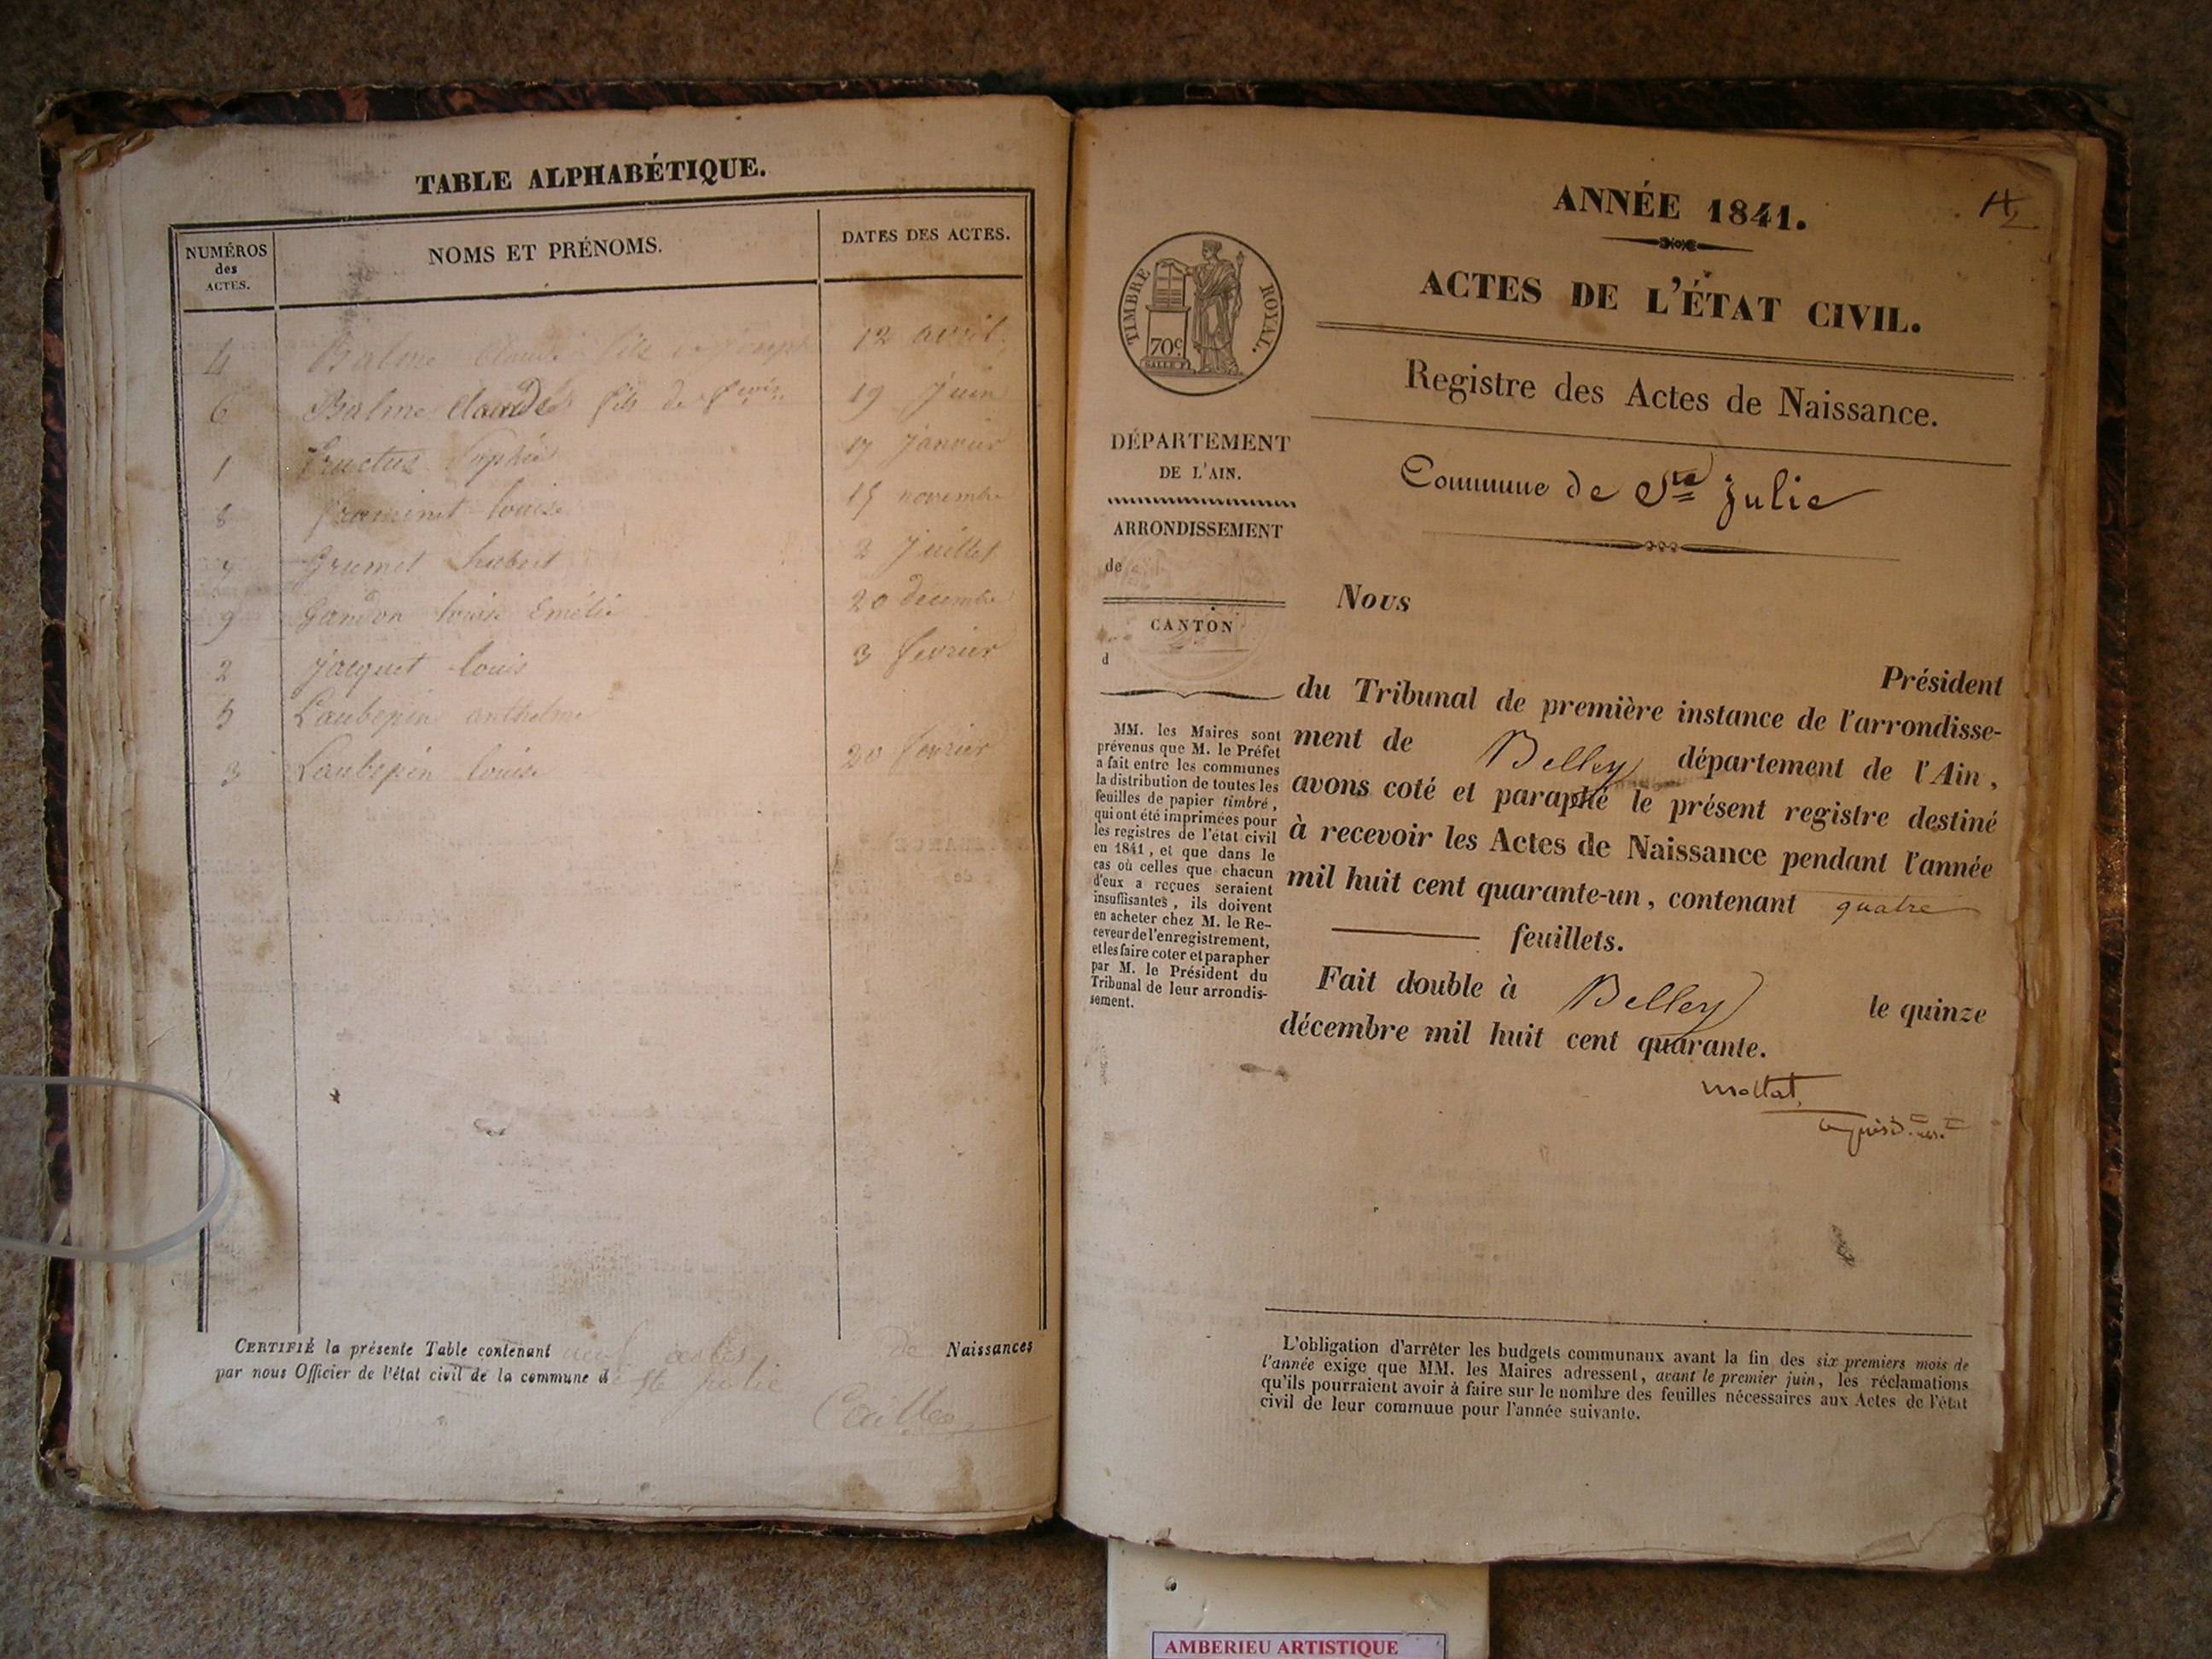 TABLE ALPHABÉTIQUE.
NUMÉROS
des
ACTES.
NOMS ET PRÉNOMS.
DATES DES ACTES.
4 Balme Claude fils de Joseph 12 avril
6 Balme Claude fils de 19 juin
1 Fructus Sophie 17 janvier
8 louise 15 novembre
7 Grumet hubert 2 juillet
9 Gardon louise Emélie 20 décembre
2 jacquet louis 3 fevrier
5 Laubepin anthelme
3 Laubepin louise 20 fevrier
CERTIFIÉ la présente Table contenant neuf actes de Naissances
par nous Officier de l'état civil de la commune de Ste Julie
ANNÉE 1841.
ACTES DE L'ÉTAT CIVIL.
Registre des Actes de Naissance.
Commune de Ste Julie
TIMBRE ROYAL.
70c
DÉPARTEMENT
DE L'AIN.
ARRONDISSEMENT
de
CANTON
d
MM. les Maires sont
prévenus que M. le Préfet
a fait entre les communes
la distribution de toutes les
feuilles de papier timbré,
qui ont été imprimées pour
les registres de l'état civil
en 1841, et que dans le
cas où celles que chacun
d'eux a reçues seraient
insuffisantes, ils doivent
en acheter chez M. le Re-
ceveur de l'enregistrement,
et les faire coter et parapher
par M. le Président du
Tribunal de leur arrondis-
sement.
Nous
Président
du Tribunal de première instance de l'arrondisse-
ment de Belley département de l'Ain,
avons coté et paraphé le présent registre destiné
à recevoir les Actes de Naissance pendant l'année
mil huit cent quarante-un, contenant quatre
feuillets.
Fait double à Belley le quinze
décembre mil huit cent quarante.
Mottat
L'obligation d'arrêter les budgets communaux avant la fin des six premiers mois de
l'année exige que MM. les Maires adressent, avant le premier juin, les réclamations
qu'ils pourraient avoir à faire sur le nombre des feuilles nécessaires aux Actes de l'état
civil de leur commune pour l'année suivante.
AMBERIEU ARTISTIQUE